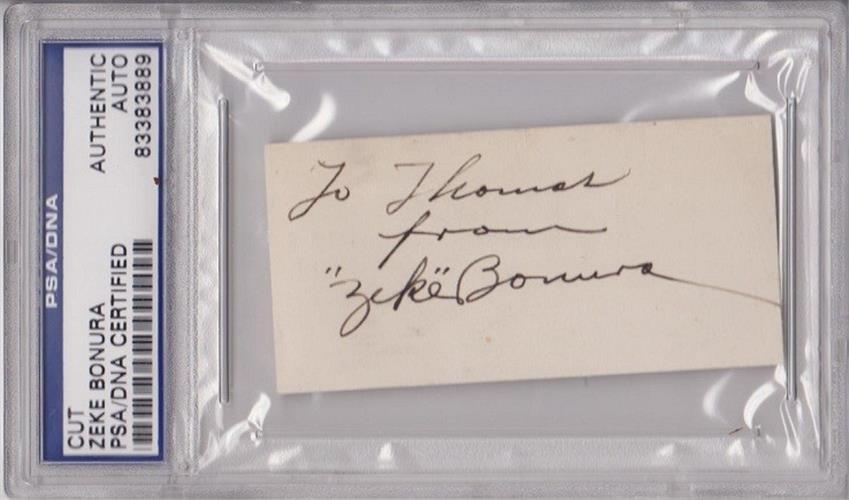 PSA/DNA
CUT
ZEKE BONURA
PSA/DNA CERTIFIED
AUTHENTIC
AUTO
83383889
To Thomas
from
"Zeke" Bonura